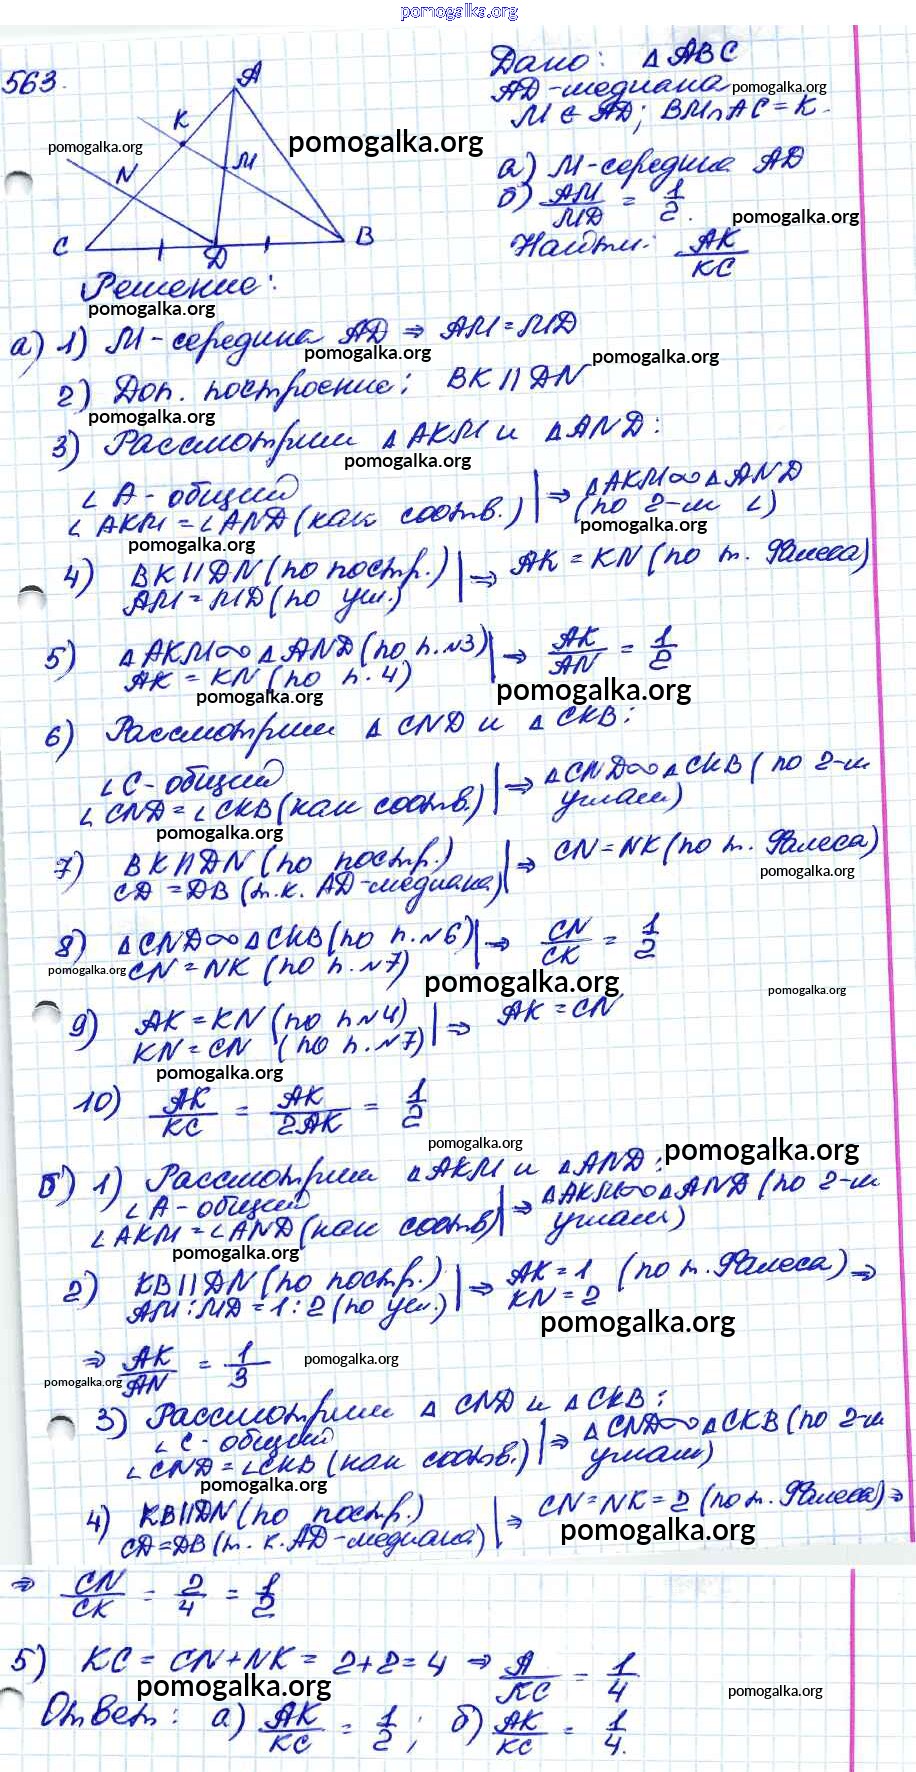 pomogalka.org
563.
A
K
M
N
C
D
B
Дано: △ABC
AD-медиана pomogalka.org
M ∈ AD; BM∩AC=K.
pomogalka.org
pomogalka.org
а) M-середина AD
б) AM/MD = 1/2.
pomogalka.org
Найти: AK/KC
Решение:
pomogalka.org
а) 1) M-середина AD ⇒ AM=MD
pomogalka.org
pomogalka.org
2) Доп. построение: BK || DN
pomogalka.org
3) Рассмотрим △AKM и △AND:
pomogalka.org
∠A-общий | ⇒ △AKM∞△AND
∠AKM=∠AND (как соотв.) | (по 2-м ∠)
pomogalka.org
pomogalka.org
4) BK || DN (по постр.) | ⇒ AK = KN (по т. Фалеса)
AM=MD (по усл.)
5) △AKM∞△AND (по п.№3) | ⇒ AK/AN = 1/2
AK = KN (по п. 4)
pomogalka.org
pomogalka.org
6) Рассмотрим △CND и △CKB:
∠C-общий | ⇒ △CND∞△CKB (по 2-м
∠CND=∠CKB (как соотв.) | углам)
pomogalka.org
7) BK || DN (по постр.) | ⇒ CN=NK (по т. Фалеса)
CD=DB (т.к. AD-медиана)
pomogalka.org
8) △CND∞△CKB (по п.№6) | ⇒ CN/CK = 1/2
pomogalka.org CN=NK (по п.№7)
pomogalka.org
pomogalka.org
9) AK=KN (по п№4) | ⇒ AK=CN
KN=CN (по п.№7)
pomogalka.org
10) AK/KC = AK/2AK = 1/2
pomogalka.org
pomogalka.org
б) 1) Рассмотрим △AKM и △AND:
∠A-общий | ⇒ △AKM∞△AND (по 2-м
∠AKM=∠AND (как соотв) | углам)
pomogalka.org
2) KB || DN (по постр.) | ⇒ AK=1 (по т. Фалеса) ⇒
AM:MD=1:2 (по усл.) | KN=2
pomogalka.org
⇒ AK/AN = 1/3
pomogalka.org
pomogalka.org
3) Рассмотрим △CND и △CKB:
∠C-общий | ⇒ △CND∞△CKB (по 2-м
∠CND=∠CKB (как соотв.) | углам)
pomogalka.org
4) KB||DN (по постр.) | ⇒ CN=NK=2 (по т. Фалеса) ⇒
CD=DB (т.к. AD-медиана)
pomogalka.org
⇒ CN/CK = 2/4 = 1/2
5) KC=CN+NK=2+2=4 ⇒ A/KC = 1/4
pomogalka.org
pomogalka.org
Ответ: а) AK/KC = 1/2; б) AK/KC = 1/4.